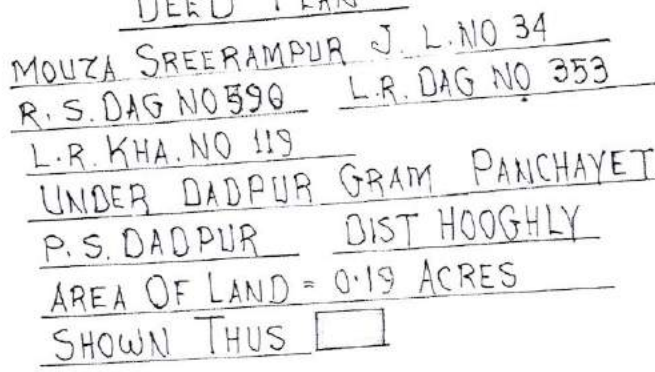 DEED PLAN
MOUZA SREERAMPUR J. L. NO 34
R. S. DAG NO 590 L.R. DAG NO 353
L.R. KHA. NO 119
UNDER DADPUR GRAM PANCHAYET
P. S. DADPUR DIST HOOGHLY
AREA OF LAND = 0.19 ACRES
SHOWN THUS